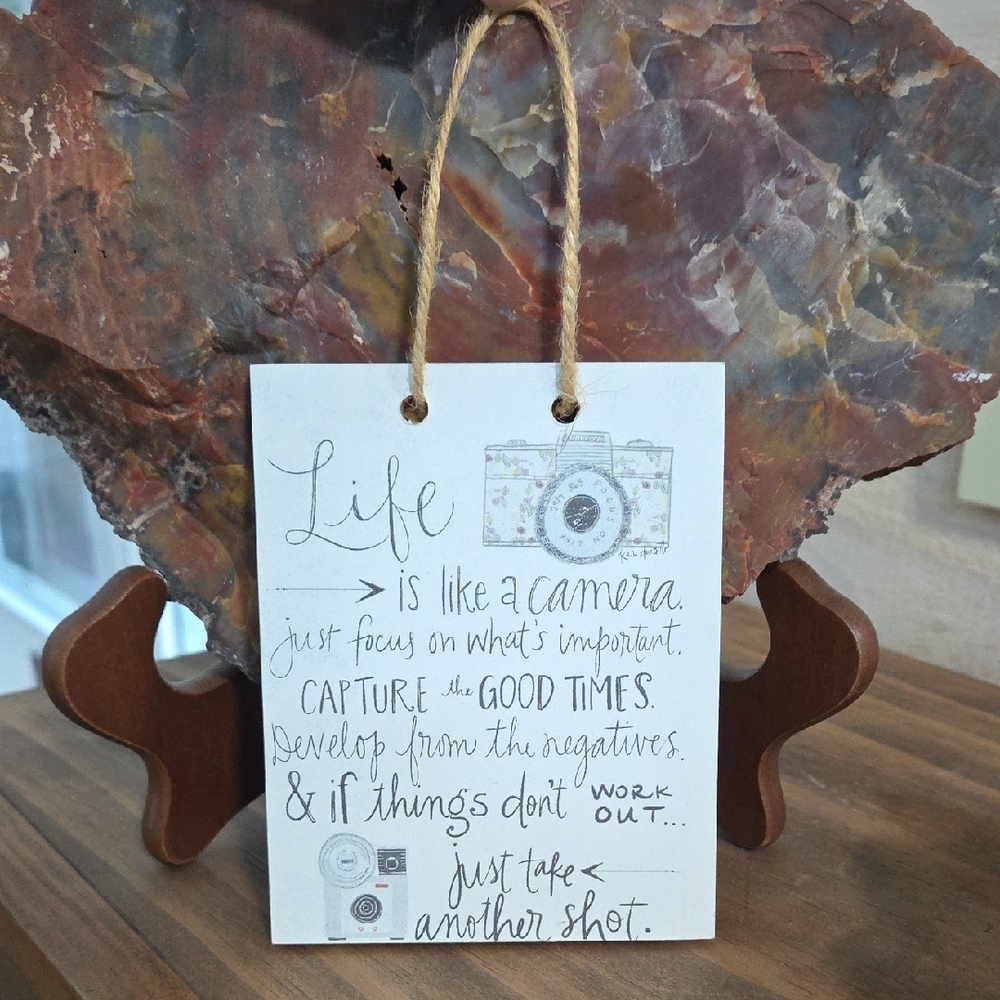 Life
is like a camera.
just focus on what's important.
CAPTURE the GOOD TIMES.
Develop from the negatives.
& if things don't WORK
OUT...
just take
another shot.